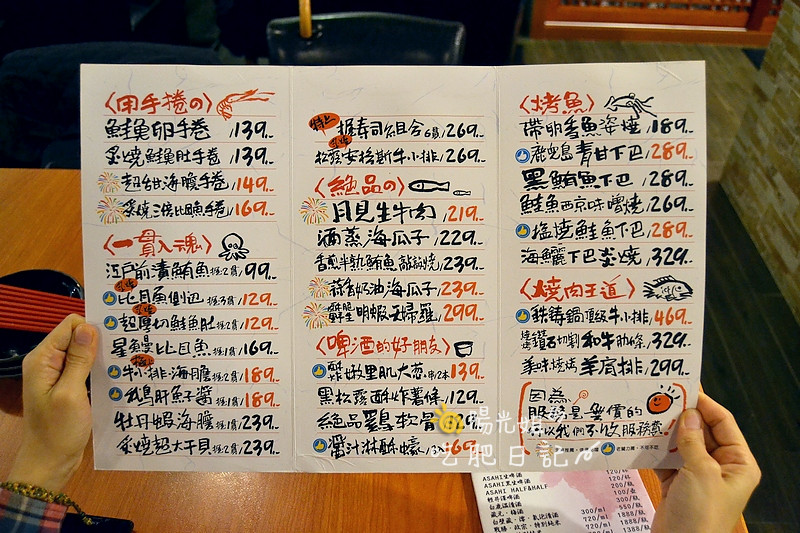 〈用手捲の〉
鮭魚卵手卷 /139
炙燒鮭魚肚手卷 /139
超甜海膽手卷 /149
炙燒三倍比目魚手卷 /169
〈一貫入魂〉
江戶前漬鮪魚 握2貫/99
比目魚側边 握2貫/129
超厚切鮭魚肚 握2貫/129
星鰻比目魚 握1貫/169
牛小排海膽 握2貫/189
鵝肝魚子醬 握1貫/189
牡丹蝦海膽 握2貫/239
炙燒超大干貝 握2貫/239
特上 握壽司組合6貫/269
松露安格斯牛小排/269
〈絕品の〉
月見生牛肉 219
酒蒸海瓜子/229
香煎半熟鮪魚 /239
蒜香奶油海瓜子/239
明蝦天婦羅/299
〈啤酒的好朋友〉
軟嫩里肌大蔥 串2本139
黑松露西式炸薯條/129
絕品雞軟骨
醬汁淋酥蠔
〈烤魚〉
帶卵香魚姿燒/189
鹿兒島青甘下巴/289
黑鮪魚下巴/289
鮭魚西京味噌燒/269
塩燒鮭魚下巴/289
海鱺下巴炙燒/329
〈燒肉王道〉
鑄鍋頂級牛小排/469
鑽石切割和牛肋條/329
美味燒烤羊肩排/299
因為
服務是無價的
所以我們不收服務費!
陽光婧
去肥日記
ASAHI生啤酒 120/杯
ASAHI黑生啤酒 120/杯
ASAHI HALF&HALF
輕井澤啤酒
白鹿溫清酒
300/ml 550/瓶
720/ml 1888/瓶
720/ml 1388/瓶